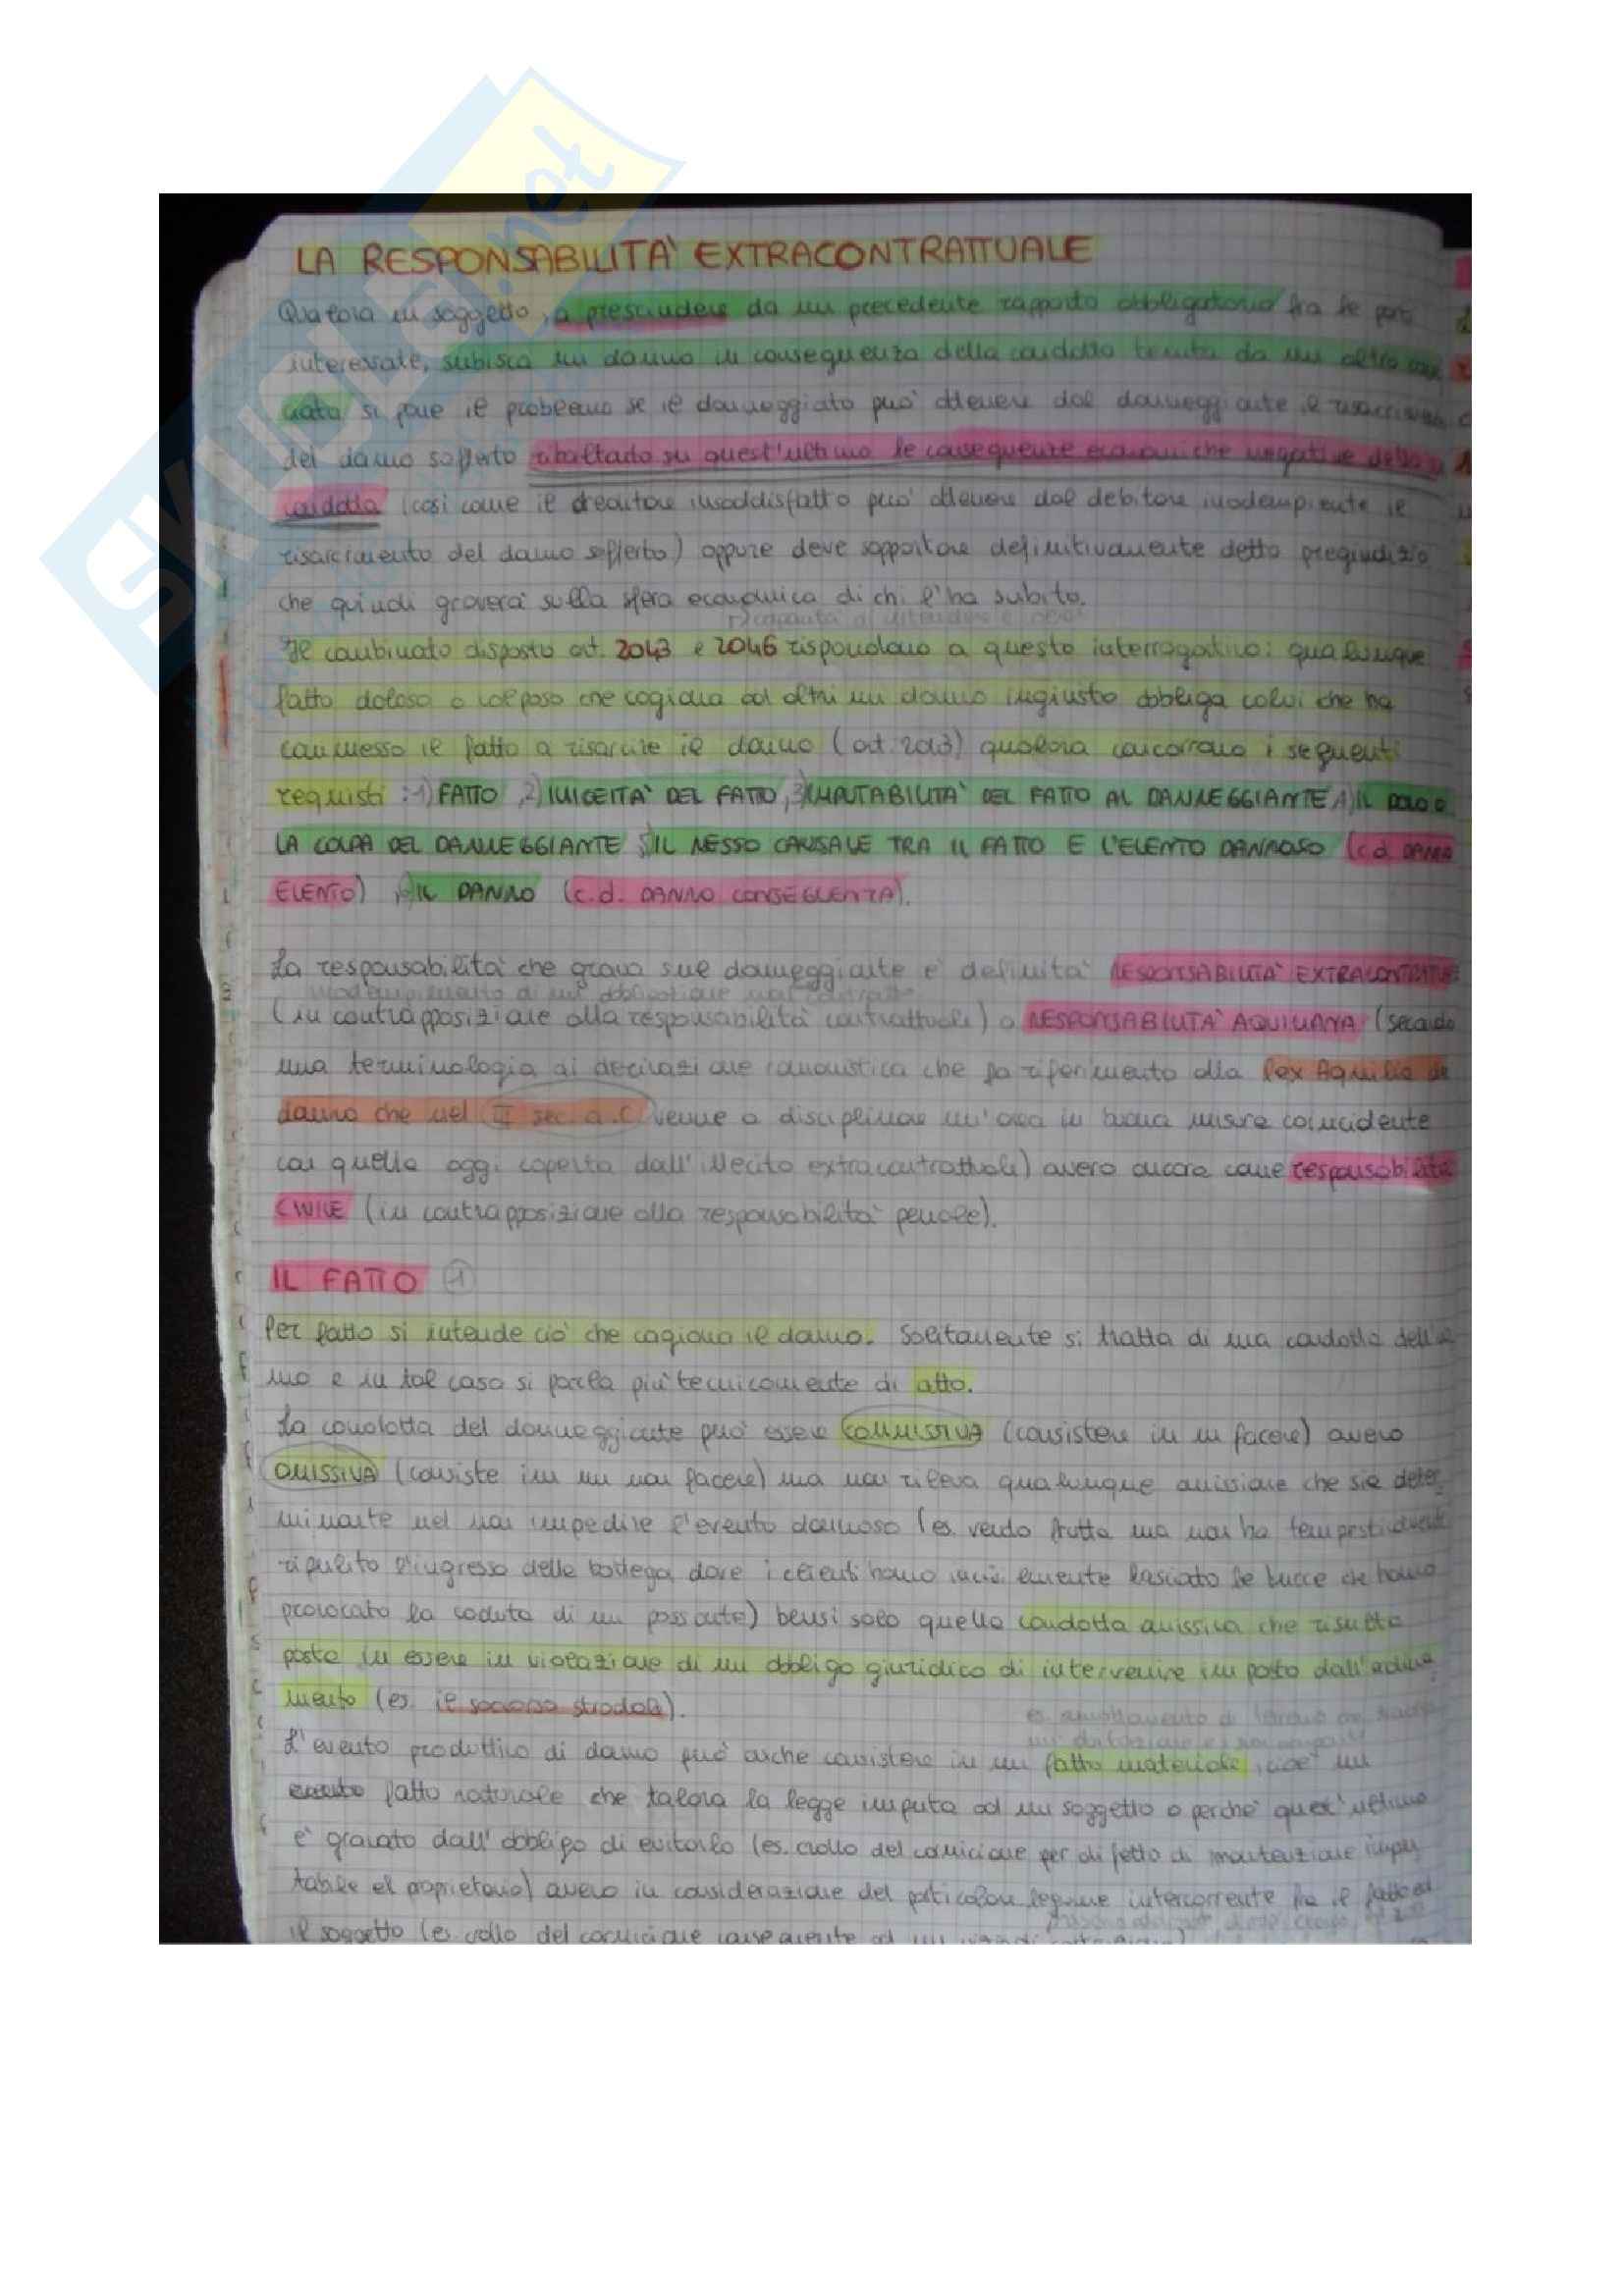 SKUOLA.net
LA RESPONSABILITA' EXTRACONTRATTUALE
Qualora un soggetto, a prescindere da un precedente rapporto obbligatorio fra le parti
interessate, subisca un danno in conseguenza della condotta tenuta da un altro
si pone il problema se il danneggiato può ottenere dal danneggiante il risarcimento
del danno sofferto ribaltando su quest'ultimo le conseguenze economiche negative della
condotta (così come il creditore insoddisfatto può ottenere dal debitore inadempiente il
risarcimento del danno sofferto) oppure deve sopportare definitivamente detto pregiudizio
che quindi graverà sulla sfera economica di chi l'ha subito.
Il combinato disposto art. 2043 e 2046 rispondono a questo interrogativo: qualunque
fatto doloso o colposo che cagiona ad altri un danno ingiusto obbliga colui che ha
commesso il fatto a risarcire il danno (art. 2043) qualora concorrano i seguenti
requisti: 1) FATTO, 2) ILLICEITA' DEL FATTO, 3) IMPUTABILITA' DEL FATTO AL DANNEGGIANTE 4) IL DOLO O
LA COLPA DEL DANNEGGIANTE 5) IL NESSO CAUSALE TRA IL FATTO E L'EVENTO DANNOSO (c.d. DANNO
EVENTO), 6) IL DANNO (c.d. DANNO CONSEGUENZA).
La responsabilità che grava sul danneggiante è definita RESPONSABILITA' EXTRACONTRATTUALE
inadempimento di un' obbligazione
(in contrapposizione alla responsabilità contrattuale) o RESPONSABILITA' AQUILIANA (secondo
una terminologia di derivazione romanistica che fa riferimento alla lex Aquilia de
danno che nel II sec. a.C. venne a disciplinare un'area in buona misura coincidente
con quella oggi coperta dall'illecito extracontrattuale) ovvero ancora come responsabilità
CIVILE (in contrapposizione alla responsabilità penale).
IL FATTO 1
Per fatto si intende ciò che cagiona il danno. Solitamente si tratta di una condotta dell'uo
mo e in tal caso si parla più tecnicamente di atto.
La condotta del danneggiante può essere COMMISSIVA (consistere in un facere) ovvero
OMISSIVA (consiste in un non facere) ma non rileva qualunque omissione che sia deter
minante nel non impedire l'evento dannoso (es. vendo frutta ma non ho tempestivamente
ripulito l'ingresso della bottega dove i clienti hanno lasciato le bucce che hanno
provocato la caduta di un passante) bensì solo quella condotta omissiva che risulta
posta in essere in violazione di un obbligo giuridico di intervenire imposto dall'ordina
mento (es. il soccorso stradale).
L'evento produttivo di danno può anche consistere in un fatto materiale, cioè un
fatto naturale che talora la legge imputa ad un soggetto o perchè quest'ultimo
è gravato dall'obbligo di evitarlo (es. crollo del cornicione per difetto di manutenzione impu
tabile al proprietario) ovvero in considerazione del particolare legame intercorrente fra il fatto ed
il soggetto (es. crollo del cornicione conseguente ad un